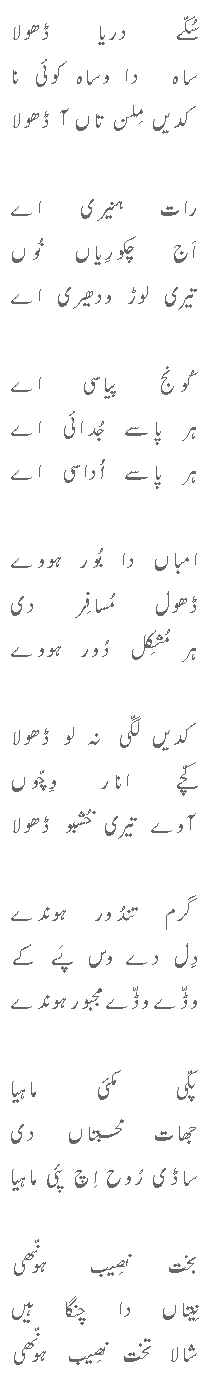 سُکّے دریا ڈھولا
ساہ دا وساہ کوئی نا
کدیں مِلن تاں آ ڈھولا
رات ہنیری اے
اَج چکورِیاں نُوں
تیری لوڑ ودھیری اے
کُونج پیاسی اے
ہر پاسے جُدائی اے
ہر پاسے اُداسی اے
امباں دا بُور ہووے
ڈھول مُسافِر دی
ہر مُشکِل دُور ہووے
کدیں لگّی نہ لو ڈھولا
کچّے انار وِچّوں
آوے تیری خُشبو ڈھولا
گرم تندُور ہوندے
دِل دے وس پَے کے
وڈّے وڈّے مجبور ہوندے
پکّی مکئی ماہیا
جھات محبتاں دی
ساڈی رُوح اِچ پئی ماہیا
بخت نصِیب ہونّھی
نِیتاں دا چنگا ہیں
شالا تخت نصِیب ہونّھی